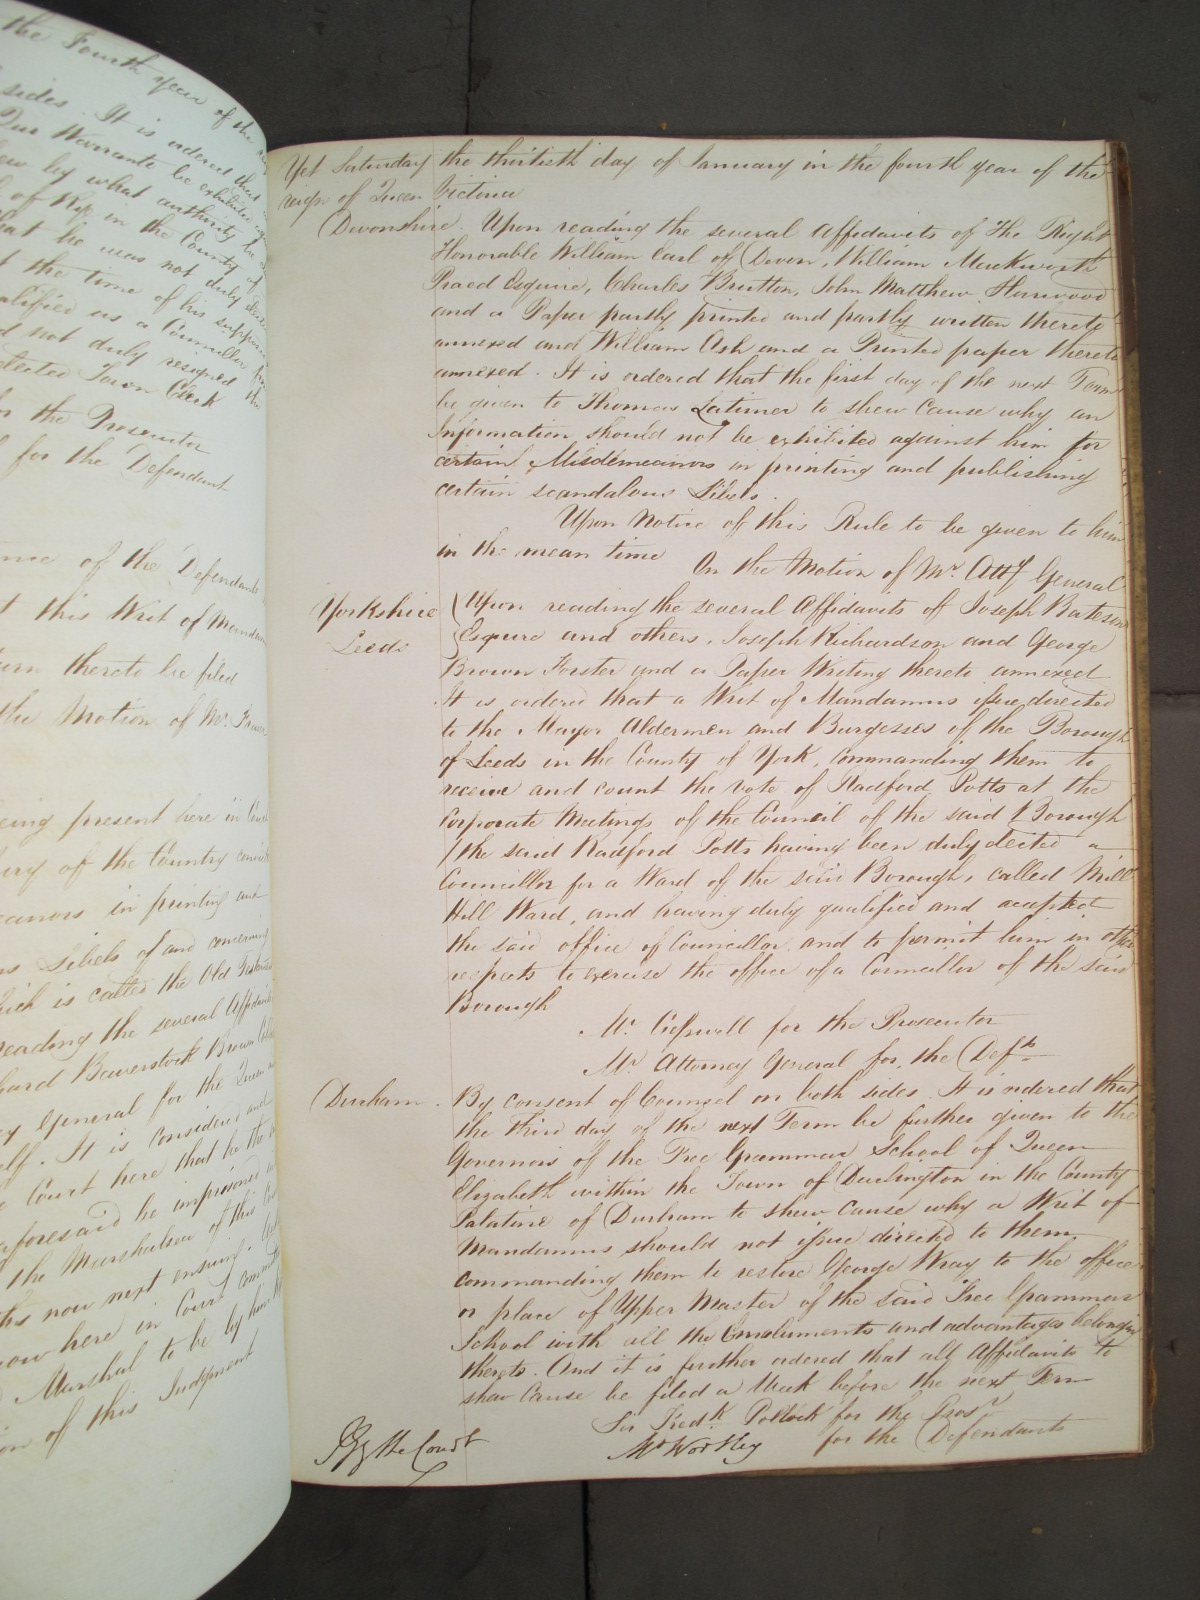 the Fourth year of the
sides. It is ordered that
Quo Warranto be exhibited
by what authority he
of Rye in the County of
that he was not duly
the time of his
qualified as a Councillor
not duly resigned the
elected Town Clerk
the Prosecutor
for the Defendant
of the Defendants
this Writ of
thereto be filed
the Motion of Mr.
being present here in
of the Country
in printing and
Libels of and concerning
which is called the Old
reading the several
Baverstock Brown
General for the Queen
It is considered and
Court here that he the
aforesaid be imprisoned
the Marshalsea of this
now next ensuing.
now here in Court
Marshal to be by him
of this Judgment
Yet Saturday the thirtieth day of January in the fourth year of the
reign of Queen Victoria
Devonshire. Upon reading the several Affidavits of The Right
Honorable William Earl of Devon, William Mackworth
Praed Esquire, Charles Brutton, John Matthew Harwood
and a Paper partly printed and partly written thereto
annexed and William Ash and a Printed paper thereto
annexed. It is ordered that the first day of the next Term
be given to Thomas Latimer to shew Cause why an
Information should not be exhibited against him for
certain Misdemeanors in printing and publishing
certain scandalous Libels.
Upon Notice of this Rule to be given to him
in the mean time
On the Motion of Mr. Atty General
Yorkshire
Leeds
Upon reading the several Affidavits of Joseph Bateson
Esquire and others, Joseph Richardson and George
Brown Forster and a Paper Writing thereto annexed
It is ordered that a Writ of Mandamus issue directed
to the Mayor Aldermen and Burgesses of the Borough
of Leeds in the County of York, Commanding them to
receive and count the vote of Radford Potts at the
Corporate Meetings of the Council of the said Borough
(the said Radford Potts having been duly elected a
Councillor for a Ward of the said Borough, called Mill
Hill Ward, and having duly qualified and accepted
the said office of Councillor and to permit him in other
respects to exercise the office of a Councillor of the said
Borough
Mr. Cresswell for the Prosecutor
Mr. Attorney General for the Defts
Durham. By consent of Counsel on both sides. It is ordered that
the third day of the next Term be further given to the
Governors of the Free Grammar School of Queen
Elizabeth within the Town of Darlington in the County
Palatine of Durham to shew Cause why a Writ of
Mandamus should not issue directed to them,
commanding them to restore George Wray to the office
or place of Upper Master of the said Free Grammar
School with all the Emoluments and advantages belonging
thereto. And it is further ordered that all Affidavits to
shew Cause be filed a Week before the next Term
Sir Fredk Pollock for the Prosr
Mr Wortley for the Defendants
By the Court